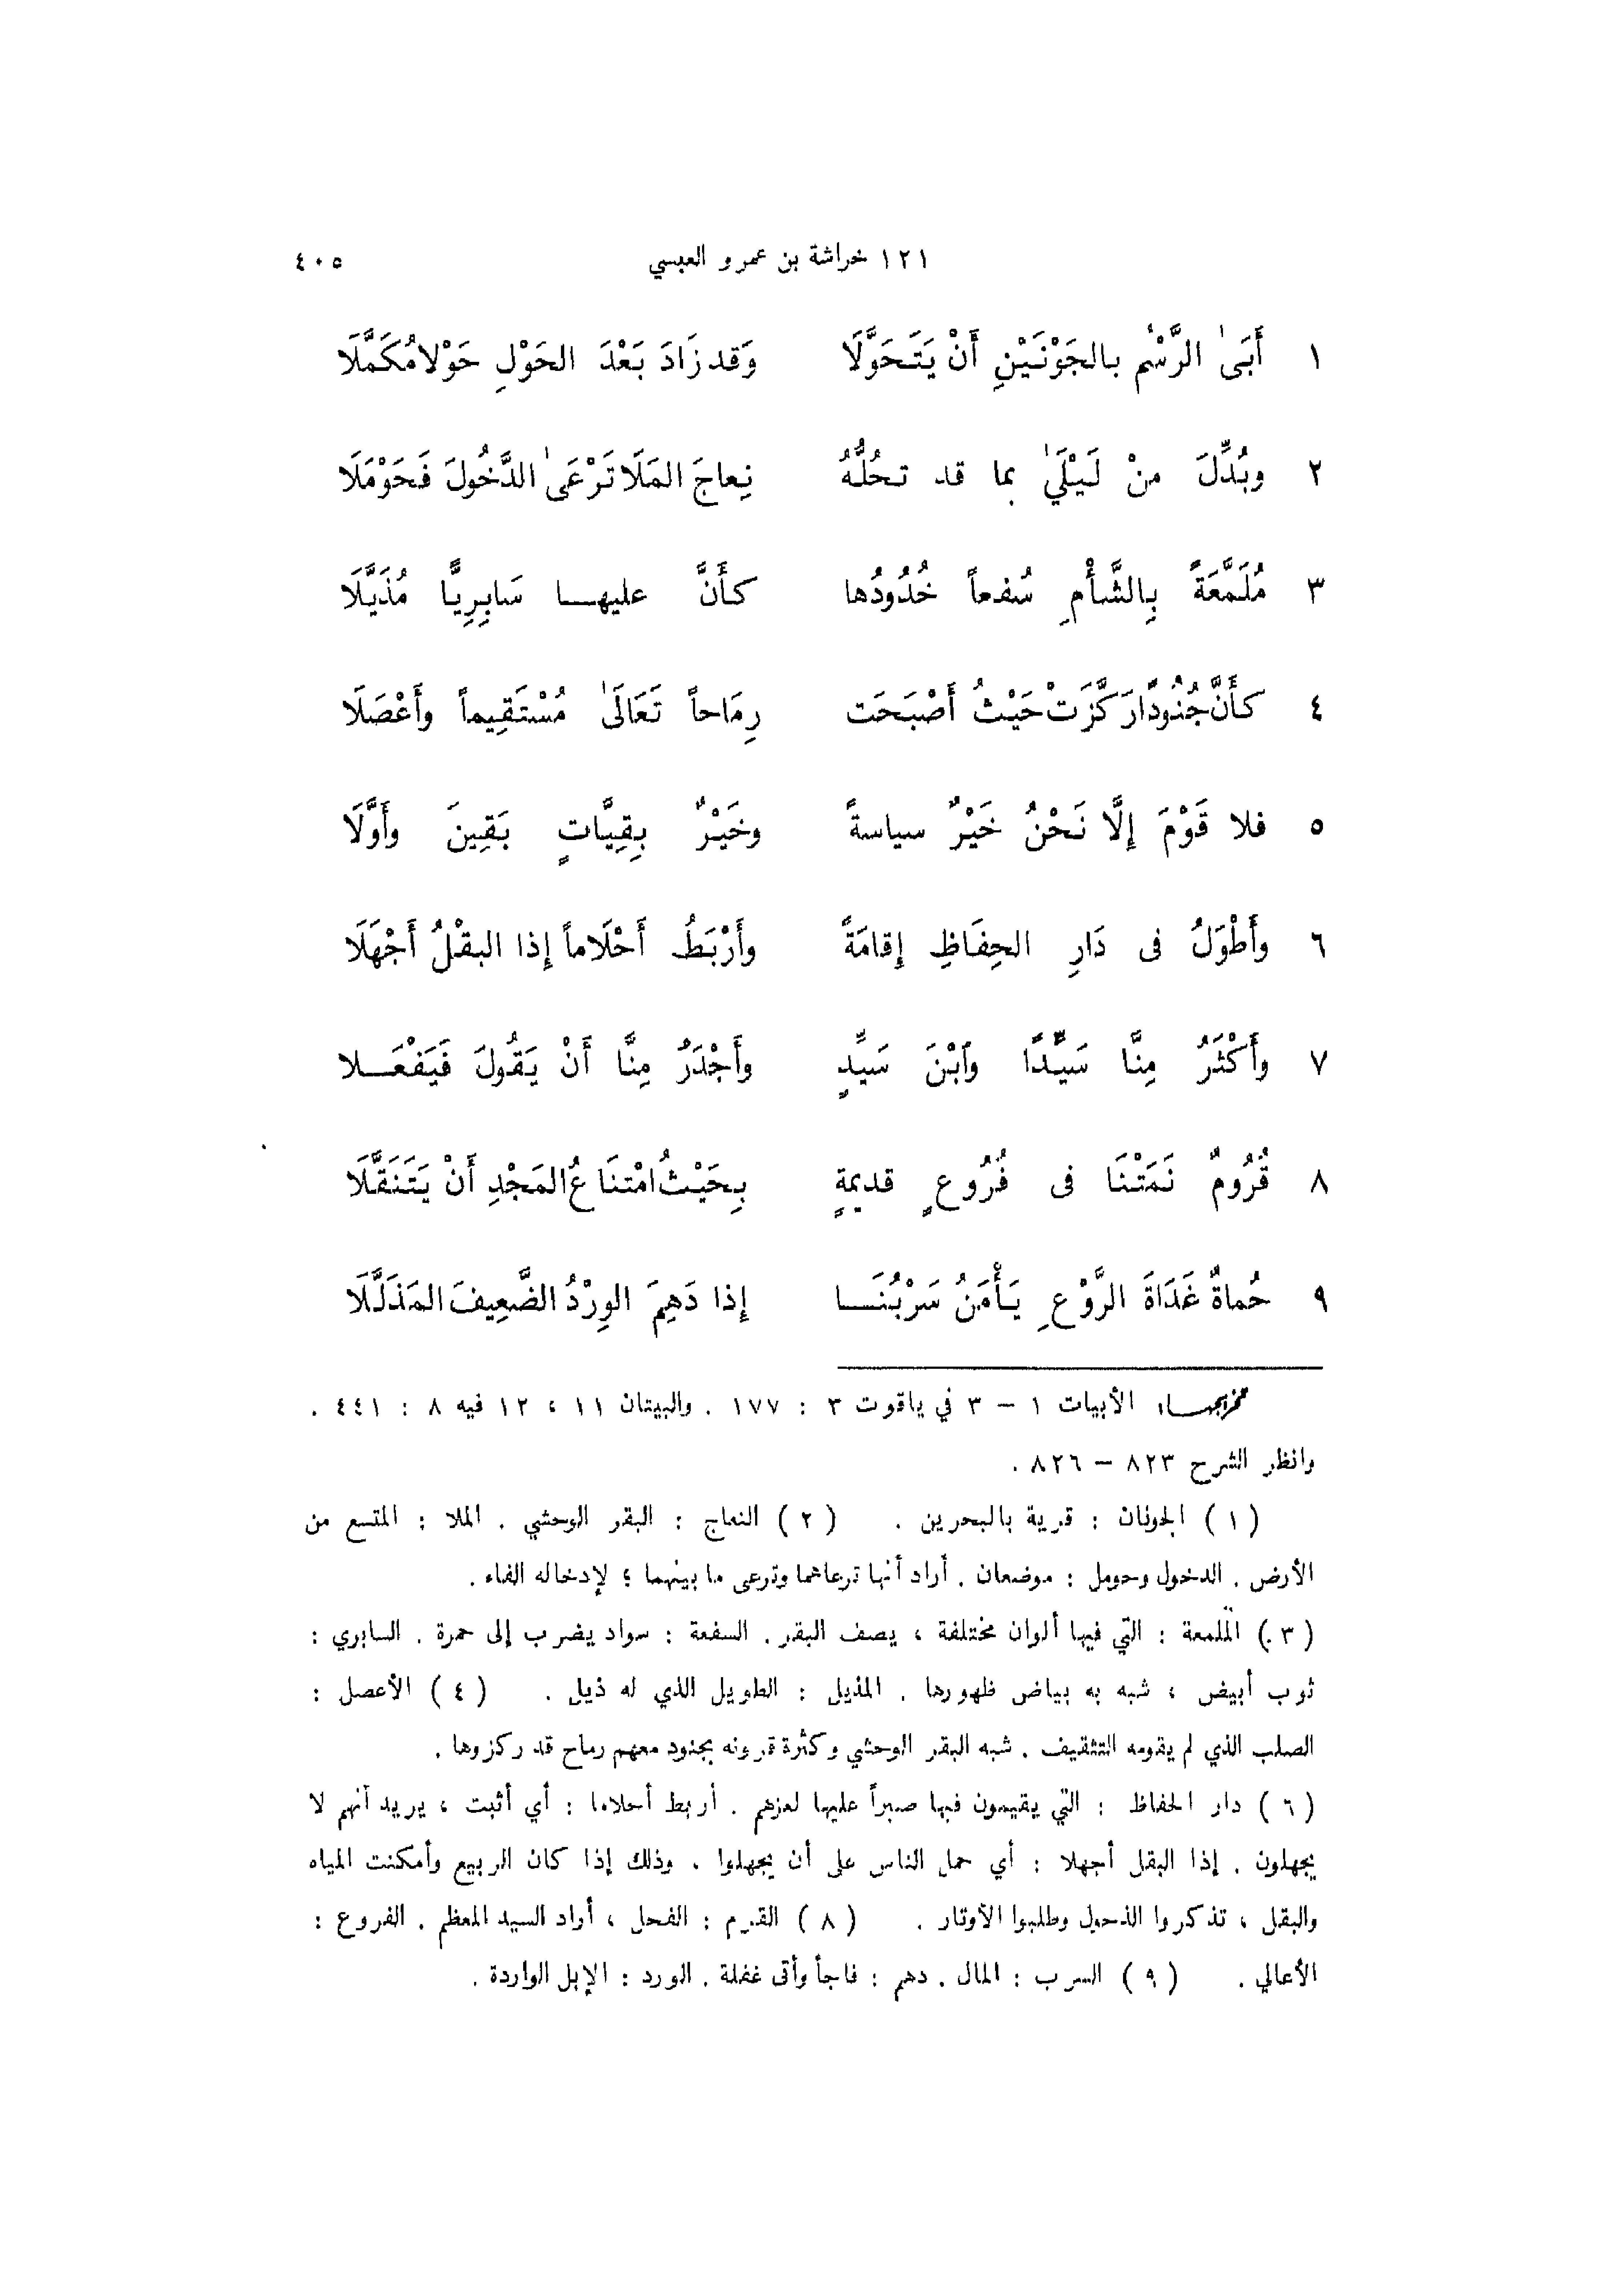 ١٢١ خراشة بن عمرو العبسي ٤٠٥
١ أَبَىٰ الرَّسْمُ بالجَوْنَيْنِ أَنْ يَتَحَوَّلَا وَقد زَادَ بَعْدَ الحَوْلِ حَوْلا مُكَمَّلَا
٢ وبُدِّلَ منْ لَيْلَىٰ بما قد تحُلُّهُ نِعاجَ المَلَا تَرْعَىٰ الدَّخُولَ فَحَوْمَلَا
٣ مُلَمَّعَةً بِالشَّأْمِ سُفعاً خُدُودُها كأَنَّ عليهـا سَابِرِيًّا مُذَيَّلَا
٤ كأَنَّ جُنُودًا رَكَّزَتْ حَيْثُ أَصْبَحَت رِمَاحاً تَعَالَىٰ مُسْتَقِيماً وأَعْصَلَا
٥ فلا قَوْمَ إِلَّا نَحْنُ خَيْرٌ سياسةً وخَيْرٌ بِقِيَّاتٍ بَقِينَ وأَوَّلَا
٦ وأَطْوَلُ فى دَارِ الحِفَاظِ إِقامَةً وأَرْبَطُ أَحْلَاماً إِذا البقْلُ أَجْهَلَا
٧ وأَكْثَرُ مِنَّا سَيِّدًا وَابْنَ سَيِّدٍ وأَجْدَرُ مِنَّا أَنْ يَقُولَ فَيَفْعَـلا
٨ قُرُومٌ نَمَتْنَا فى فُرُوعٍ قديمةٍ بِحَيْثُ امْتنَاعُ المَجْدِ أَنْ يَتَنَقَّلَا
٩ حُماةٌ غَدَاةَ الرَّوْعِ يَأْمَنُ سَرْبُنَـا إِذا دَهِمَ الوِرْدُ الضَّعِيفَ المَذَلَّلَا
تخريجهـا: الأبيات ١ – ٣ في ياقوت ٣ : ١٧٧ . والبيتان ١١ ، ١٢ فيه ٨ : ٤٤١ .
وانظر الشرح ٨٢٣ – ٨٢٦ .
( ١ ) الجونان : قرية بالبحرين . ( ٢ ) النعاج : البقر الوحشي . الملا : المتسع من
الأرض . الدخول وحومل : موضعان . أراد أنها ترعاهما وترعى ما بينهما ؛ لإدخاله الفاء .
( ٣ ) الملمعة : التي فيها ألوان مختلفة ، يصف البقر . السفعة : سواد يضرب إلى حمرة . السابري :
ثوب أبيض ، شبه به بياض ظهورها . المذيل : الطويل الذي له ذيل . ( ٤ ) الأعصل :
الصلب الذي لم يقومه التثقيف . شبه البقر الوحشي وكثرة قرونه بجنود معهم رماح قد ركزوها .
( ٦ ) دار الحفاظ : التي يقيمون فيها صبراً عليها لعزهم . أربط أحلاما : أي أثبت ، يريد أنهم لا
يجهلون . إذا البقل أجهلا : أي حمل الناس على أن يجهلوا . وذلك إذا كان الربيع وأمكنت المياه
والبقل ، تذكروا الذحول وطلبوا الأوتار . ( ٨ ) القرم : الفحل ، أراد السيد المعظم . الفروع :
الأعالي . ( ٩ ) السرب : المال . دهم : فاجأ وأتى غفلة . الورد : الإبل الواردة .